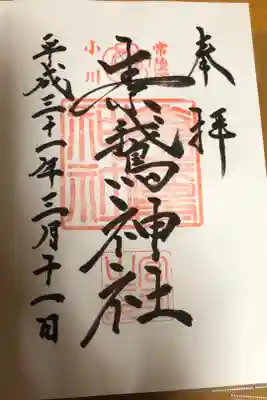 奉拝
常陸
素鵞神社
小川
平成三十一年三月十一日